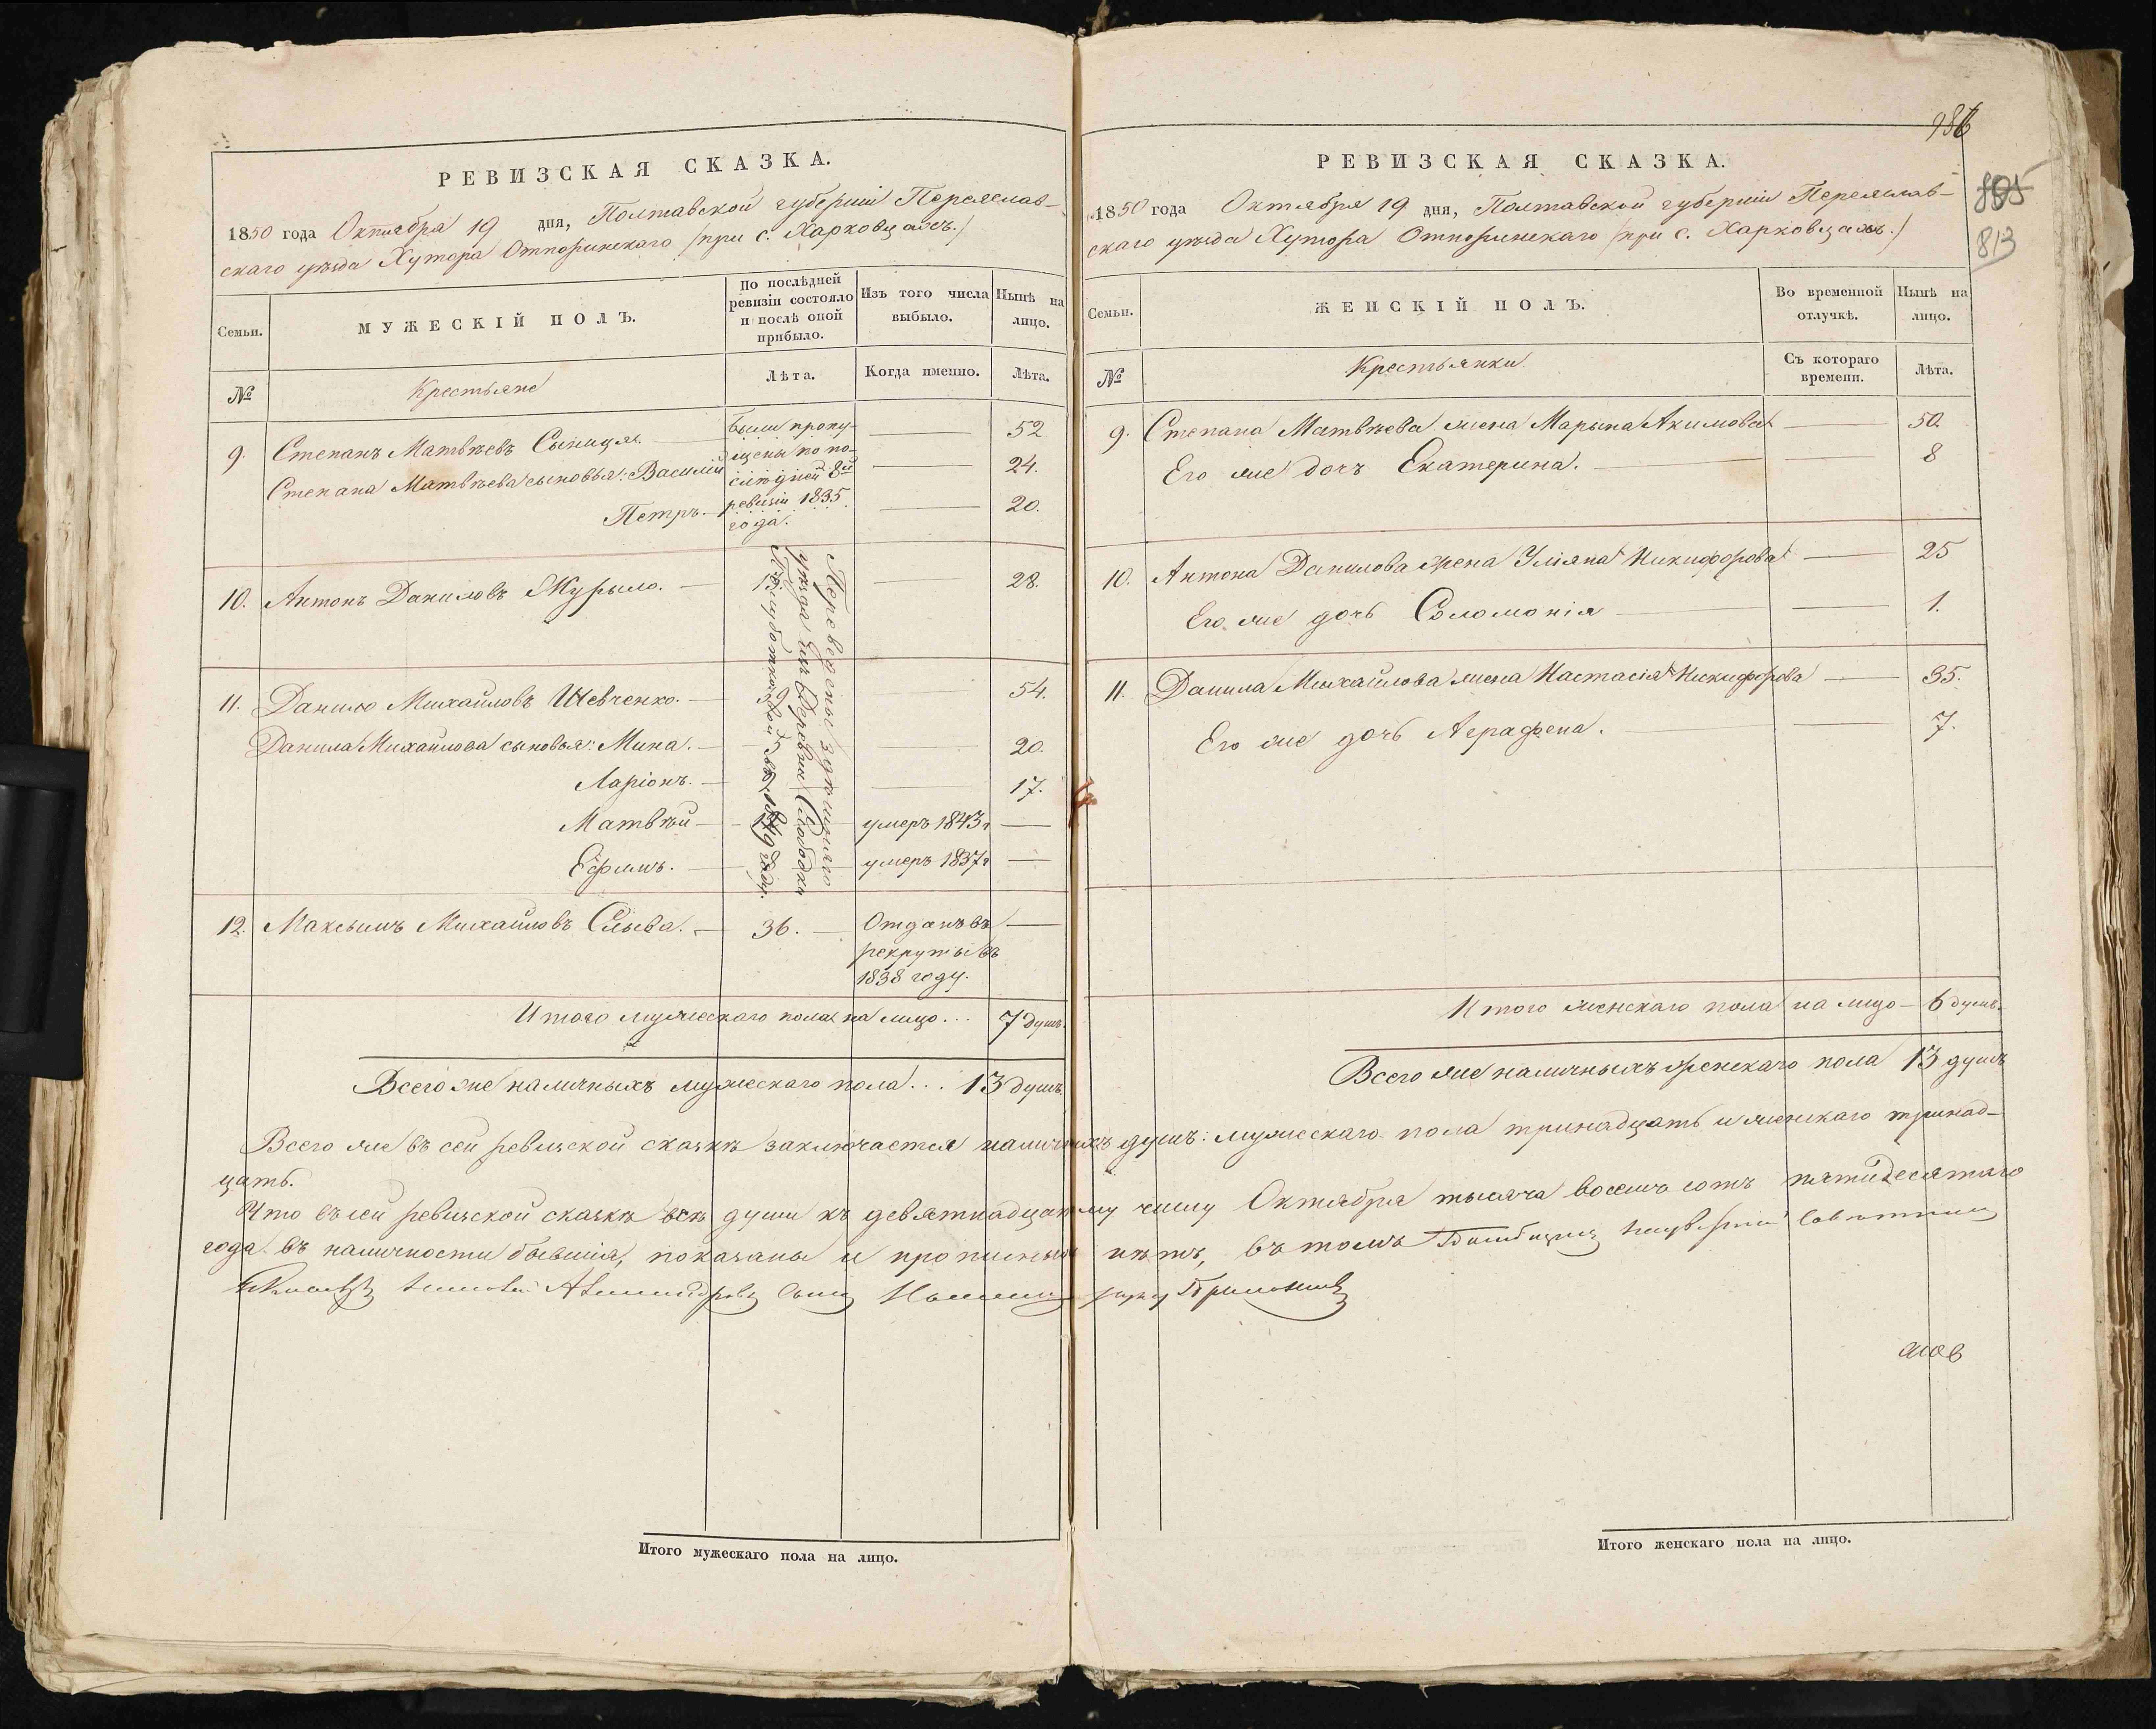 РЕВИЗСКАЯ СКАЗКА.
1850 года Октября 19 дня, Полтавской губерніи Переяслав-
скаго уѣзда Хутора (при с. Харковцахъ.)
Семьи.
МУЖЕСКІЙ ПОЛЪ.
По послѣдней
ревизіи состояло
и послѣ оной
прибыло.
Изъ того числа
выбыло.
Нынѣ на
лицо.
№
Крестьяне
Лѣта.
Когда именно.
Лѣта.
9. Степанъ Матвѣевъ 52
Степана Матвѣева сыновья: Василій 24.
Петръ. 20.
были пропу-
щены по по-
слѣдней 8й
ревизіи 1835
года.
10. Антонъ Даниловъ Мурыло. 13 28.
11. Данило Михайловъ Шевченко. 54.
Данила Михайлова сыновья: Мина. 20.
Ларіонъ. 17.
Матвѣй умеръ 1843г
Ефимъ. умеръ 1837г
Переведены здѣшняго
уѣзда изъ Деревни Слободки
въ 1849 году.
12. Максимъ Михайловъ Слыва. 36. Отданъ въ
рекруты въ
1838 году.
Итого мужескаго пола на лицо... 7 душъ.
Всего же наличныхъ мужескаго пола... 13 душъ.
986
805
813
РЕВИЗСКАЯ СКАЗКА.
1850 года Октября 19 дня, Полтавской губерніи Переяслав-
скаго уѣзда Хутора (при с. Харковцахъ.)
Семьи.
ЖЕНСКІЙ ПОЛЪ.
Во временной
отлучкѣ.
Нынѣ на
лицо.
№
Крестьянки
Съ котораго
времени.
Лѣта.
9. Степана Матвѣева жена Марына Акимова 50.
Его же дочъ Екатерина. 8
10. Антона Данилова жена Уліяна Никифорова 25
Его же дочь Соломонія 1.
11. Данила Михайлова жена Настасія Никифорова 35.
Его же дочь Аграфена. 7.
Итого женскаго пола на лицо 6 душъ.
Всего же наличныхъ женскаго пола 13 душъ
Всего же въ сей ревизской сказкѣ заключается наличныхъ душъ: мужескаго пола тринадцать и женскаго тринад-
цать.
Что въ сей ревизской сказкѣ всѣ души къ девятнадцатому числу Октября тысяча восемь сотъ пятидесятаго
года въ наличности бывшія, показаны и прописныхъ нѣтъ, въ томъ
Итого мужескаго пола на лицо.
Итого женскаго пола на лицо.